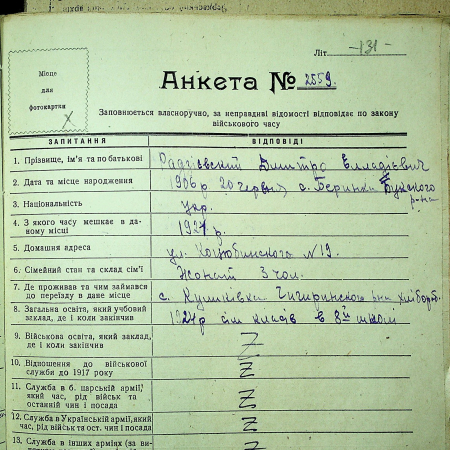 Літ. —131—
Місце
для
фотокартки
Анкета № 2559.
Заповнюється власноручно, за неправдиві відомості відповідає по закону
військового часу
ЗАПИТАННЯ ВІДПОВІДІ
1. Прізвище, ім'я та по батькові Радзієвский Димитро Елладієвич
2. Дата та місце народження 1906 р 20 червня с. Беринка Букского р-на
3. Національність укр.
4. З якого часу мешкає в даному місці 1927 р.
5. Домашня адреса ул. Коцюбинского № 19.
6. Сімейний стан та склад сім'ї Жонат 3 чол.
7. Де проживав та чим займався до переїзду в дане місце с. Чигиринского р-на Хлібороб.
8. Загальна освіта, який учбовий заклад, де і коли закінчив 1924 р сім класів в 8й школі
9. Військова освіта, який заклад, де і коли закінчив Z
10. Відношення до військової служби до 1917 року Z
11. Служба в б. царській армії, який час, рід військ та останній чин і посада Z
12. Служба в Українській армії, який час, рід військ та ост. чин і посада Z
13. Служба в інших арміях (за ви-